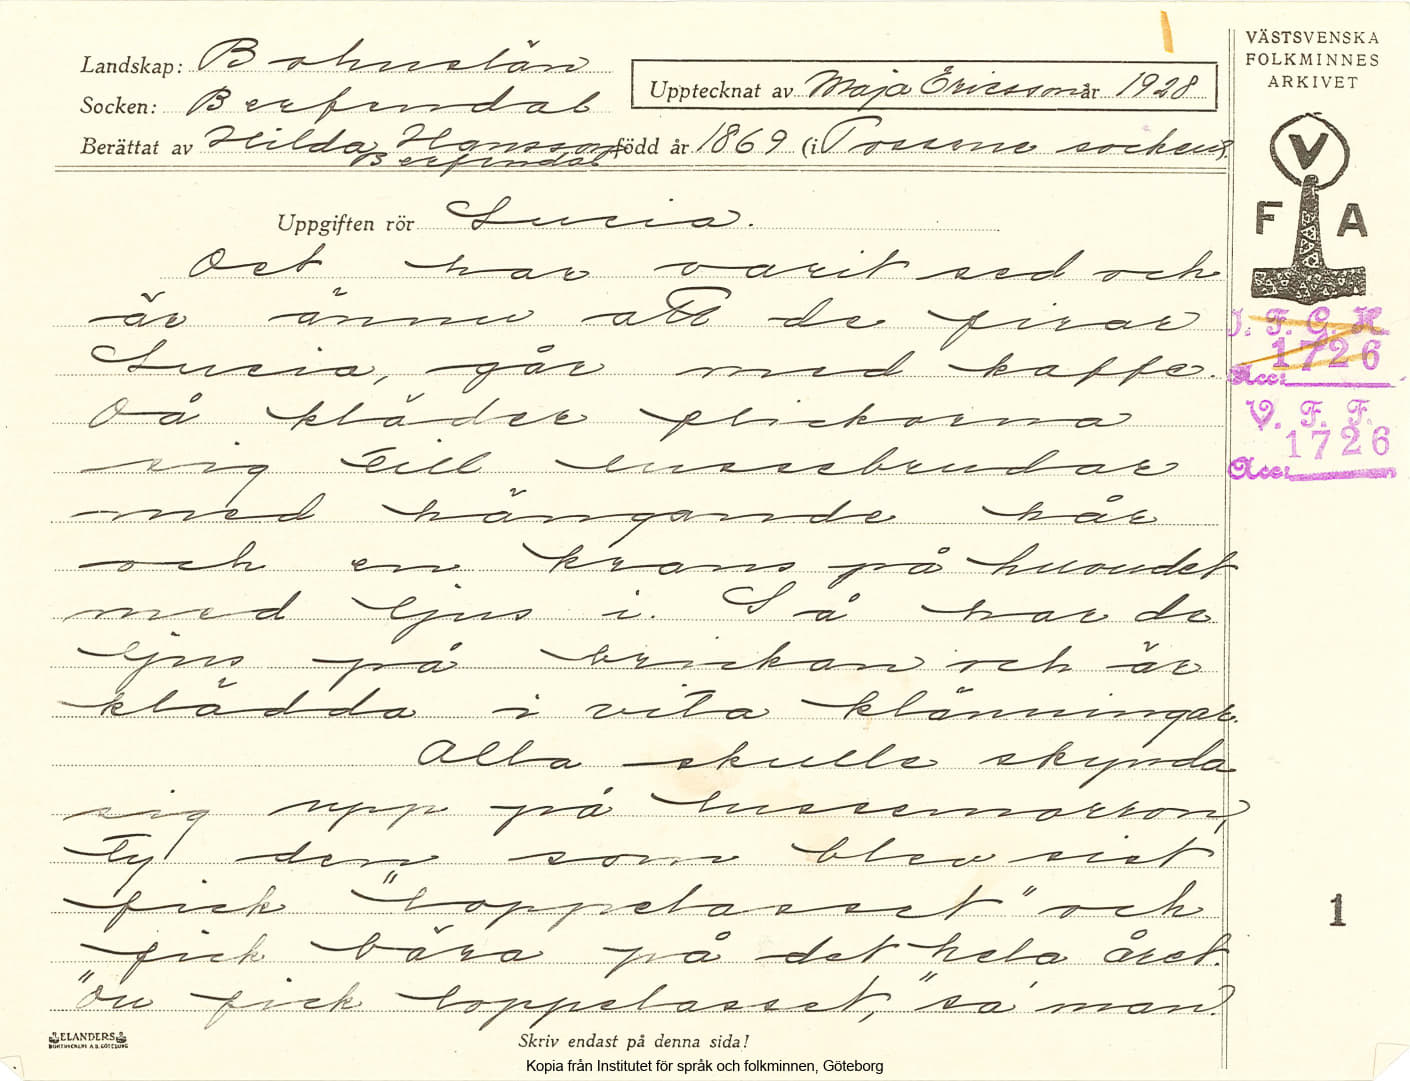 Landskap: Bohuslän
Socken: Berfendal
Upptecknat av Maja Ericsson år 1928
Berättat av Hilda Hansson född år 1869 (i Tossene socken).
Berfendal
VÄSTSVENSKA
FOLKMINNES
ARKIVET
V
F A
I. F. G. H.
1726
Acc:
V. F. F.
1726
Acc:
Uppgiften rör Lucia.
Det har varit sed och
är ännu att de firar
Lucia, går med kaffe.
Då kläder flickorna
sig till lussebrudar
med hängande hår
och en krans på huvudet
med ljus i. Så har de
ljus på brickan och är
klädda i vita klänningar.
Alla skulle skynda
sig upp på lussemorron,
Ty den som blev sist
fick "loppelasset" och
fick bära på det hela året.
"Du fick loppelasset," sa' man.
1
ELANDERS
BOKTRYCKERI A.B. GÖTEBORG
Skriv endast på denna sida!
Kopia från Institutet för språk och folkminnen, Göteborg